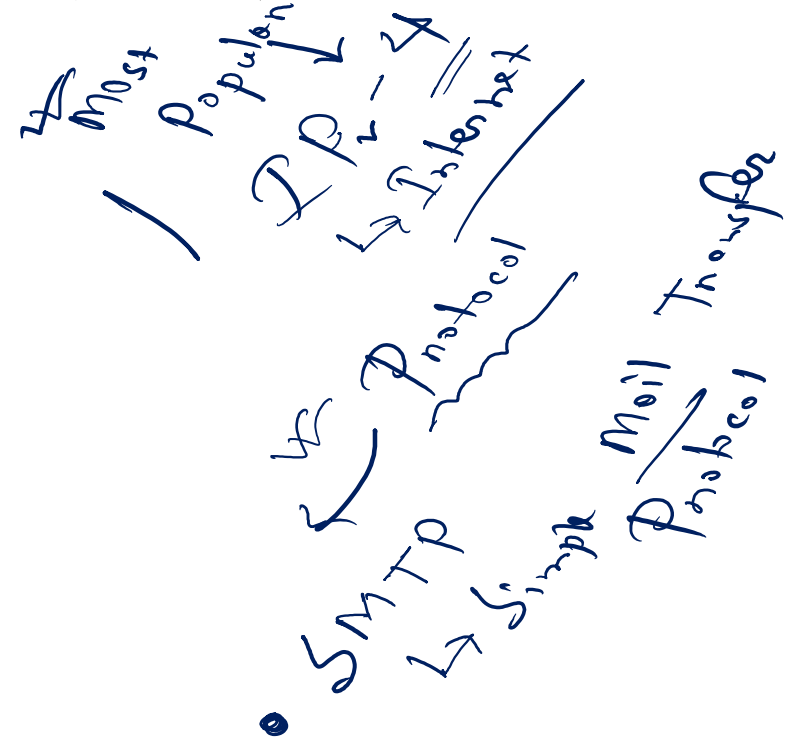 Most
Popular
IPv-4
Internet
Protocol
SMTP
Simple
Mail Transfer
Protocol